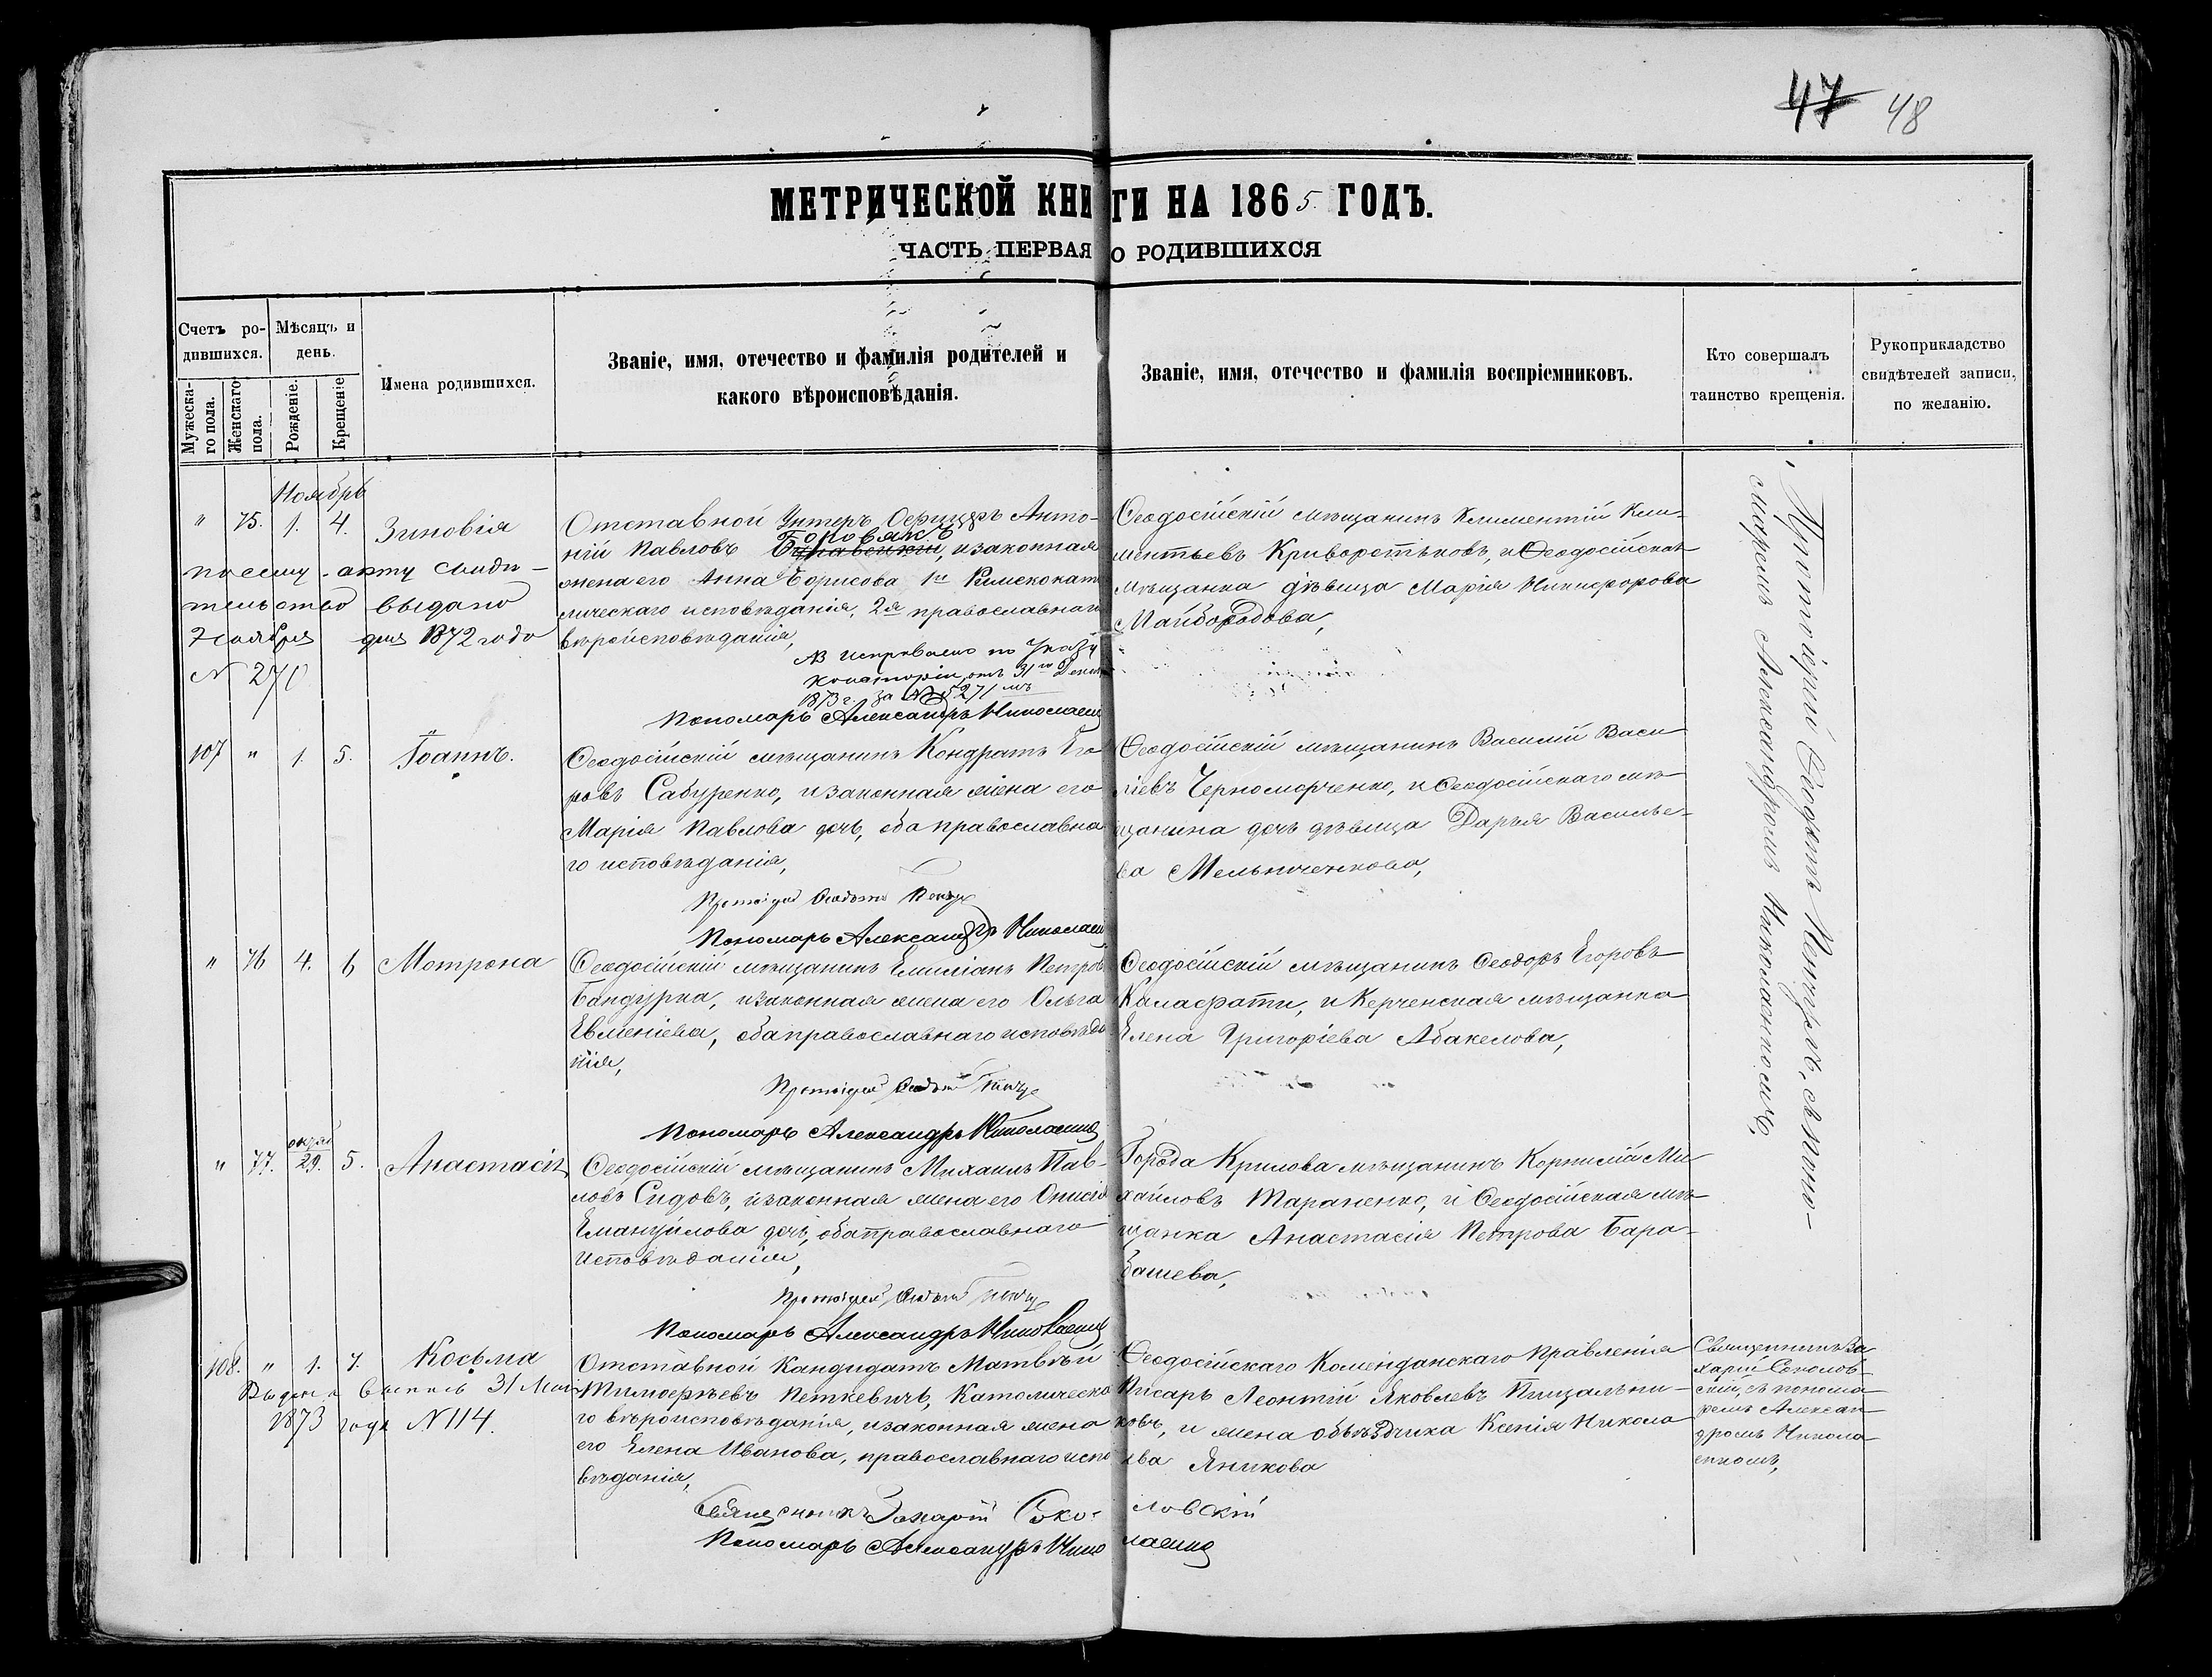 47 48
МЕТРИЧЕСКОЙ КНИГИ НА 1865 ГОДЪ.
ЧАСТЬ ПЕРВАЯ О РОДИВШИХСЯ
Счетъ ро-
дившихся.
Мужеска-
го пола.
Женскаго
пола.
Мѣсяцъ и
день.
Рожденіе.
Крещеніе
Имена родившихся.
Званіе, имя, отечество и фамилія родителей и
какого вѣроисповѣданія.
Званіе, имя, отечество и фамилія воспріемниковъ.
Кто совершалъ
таинство крещенія.
Рукоприкладство
свидѣтелей записи,
по желанію.
Ноябрь
" 75. 1. 4. Зиновія
по сему акту свидѣ-
тельство выдано
Ноября дня 1872 года
N 270
Отставной Унтеръ Офицеръ Анто-
Боровякъ
ній Павловъ, и законная
жена его Анна Борисова 1й Римскокато
лическаго исповѣданія, 2я православнаго
вѣроисповѣданія,
NB Исправлено по Указу
Консисторіи отъ 31го Декаб
1873 г за № 5271мъ
Пономарь Александръ Николаенко
Ѳеодосійскій мѣщанинъ Климентій Кли-
ментьевъ Криворотьковъ, и Ѳеодосійская
мѣщанка дѣвица Марія Никифорова
Майбородова,
Протоіерей Ѳеодотъ Пенчулъ, съ поно-
маремъ Александромъ Николаенкомъ,
107 " 1. 5. Іоаннъ.
Ѳеодосійскій мѣщанинъ Кондратъ Его
ровъ Сабуренко, и законная жена его
Марія Павлова дочь, оба православна
го исповѣданія,
Протоіерей Ѳеодотъ
Пономарь Александръ Николаенко
Ѳеодосійскій мѣщанинъ Василій Васи
ліевъ Черноморченко, и Ѳеодосійскаго мѣ
щанина дочь дѣвица Дарья Василье-
ва Мельниченкова,
" 76 4. 6 Мотрона
Ѳеодосійскій мѣщанинъ Емиліанъ Петровъ
Бандурка, и законная жена его Ольга
Евменіева, оба православнаго исповѣда
нія,
Протоіерей Ѳеодотъ
Пономарь Александръ Николаенко
Ѳеодосійскій мѣщанинъ Ѳеодоръ Егоровъ
Калафати, и Керченская мѣщанка
Елена Григоріева Абакелова,
октяб
" 77. 29. 5. Анастасія
Ѳеодосійскій мѣщанинъ Михаилъ Пав-
ловъ Сидовъ, и законная жена его Онисія
Емануилова дочь, оба православнаго
исповѣданія,
Протоіерей Ѳеодотъ
Пономарь Александръ Николаенко
Города Крилова мѣщанинъ Корнилій Ми
хайловъ Тараненко, и Ѳеодосійская мѣ-
щанка Анастасія Петрова Бара-
башева,
108. " 1. 7. Косьма
Выдана выпись 31 Мая
1873 года N 114.
Отставной Кандидатъ Матвѣй
Тимофѣевъ Петкевичъ, Католическа
го вѣроисповѣданія, и законная жена
его Елена Иванова, православнаго испо
вѣданія,
Священникъ Захарій Соколовскій
Пономарь Александръ Николаенко
Ѳеодосійскаго Коменданскаго Правленія
Писарь Леонтій Яковлевъ Пищальни-
ковъ, и жена объѣздчика Ксенія Никола
ева Яникова
Священникъ За
харій Соколов-
скій, съ понома
ремъ Алексан
дромъ Никола
енкомъ,